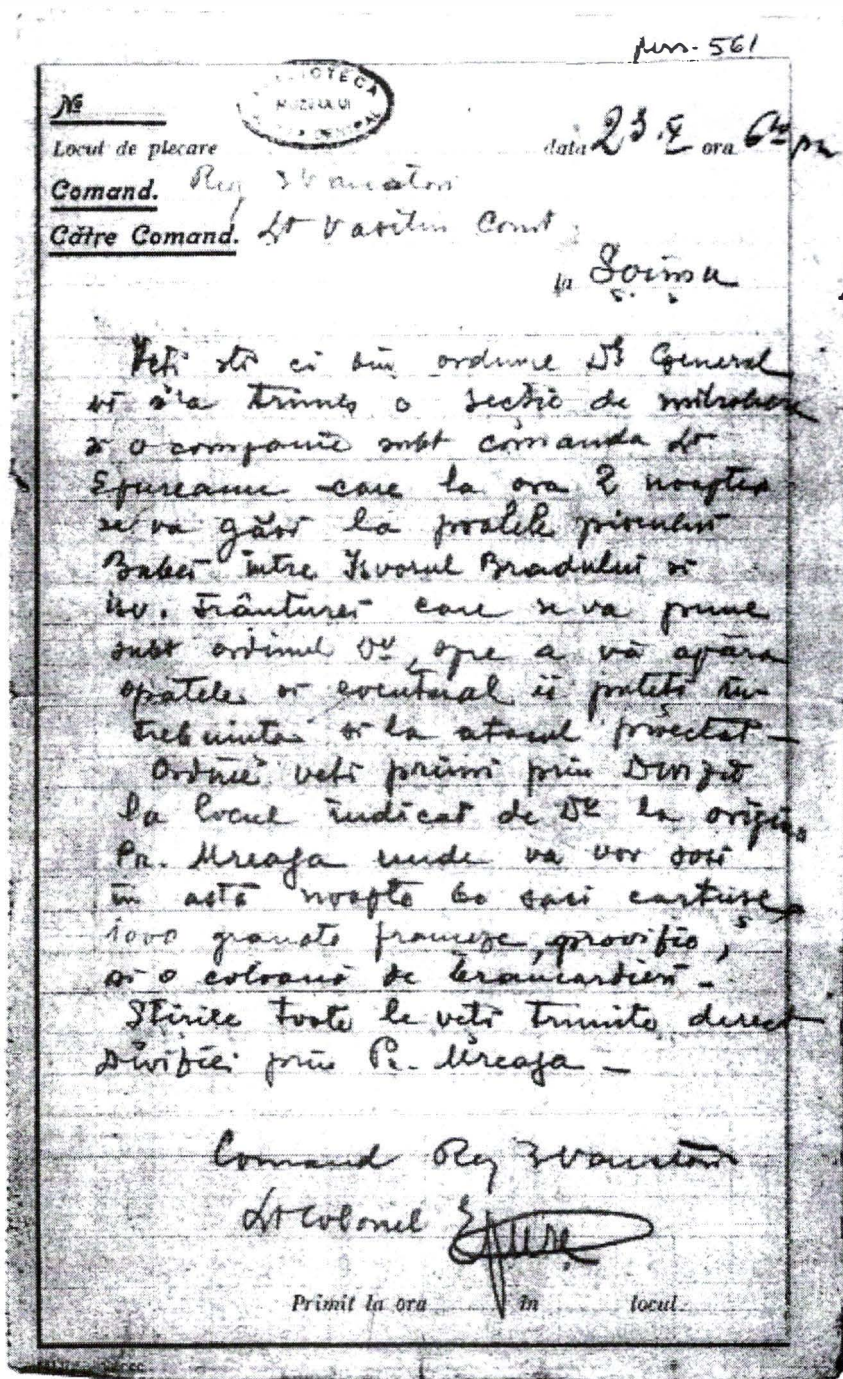 mss. 561
BIBLIOTECA
MUZEULUI
MILITAR CENTRAL
№
Locul de plecare data 23.X ora 6 pm
Comand. Reg 3 Vanatori
Către Comand. Lt Vasiliu Const
la Șoimu
Veți sti că din ordine Dl General
vi s'a trimes o secție de mitraliere
si o companie subt comanda Lt
Epureanu care la ora 2 noaptea
se va găsi la poalele piscului
Babei între Isvorul Bradului si
Isv. Frânturei care se va pune
subt ordinul Dv, spre a vă apăra
spatele si eventual îi puteti în-
trebuinta si la atacul proectat –
Ordine veti primi prin Divizie
la locul indicat de Dv la origina
Pr. Mreaja unde va vor sosi
în astă noapte 60 saci cartușe,
1000 granate franceze, provizio,
si o coloană de brancardieri –
Stirile toate le veti trimite direct
Diviziei prin Pr. Mreaja –
Comand Reg 3 Vanatori
Lt Colonel Epure
Primit la ora în locul